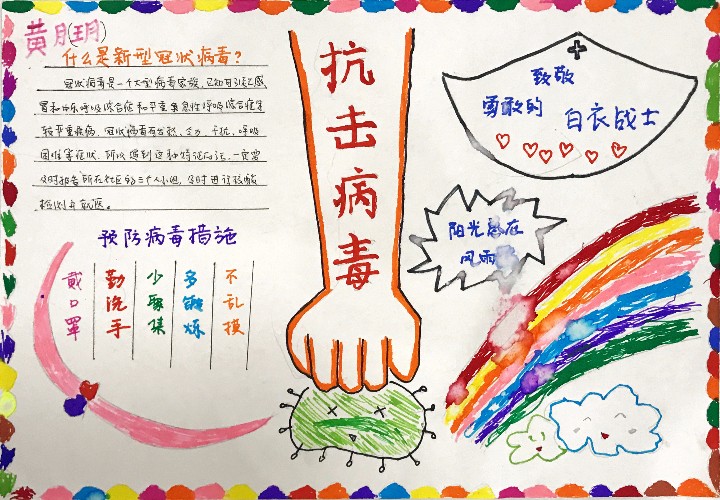 黄月(玥)
什么是新型冠状病毒?
冠状病毒是一个大型病毒家族,已知可引起感
冒和中东呼吸综合征和严重急性呼吸综合征等
较严重疾病,冠状病毒有发热、乏力、干咳、呼吸
困难等症状,所以遇到这种特征的话,一定要
及时报告所在社区的三个人小组,及时进行核酸
检测与就医。
预防病毒措施
戴口罩
勤洗手
少聚集
多锻炼
不乱摸
抗击病毒
致敬
勇敢的
白衣战士
阳光总在
风雨